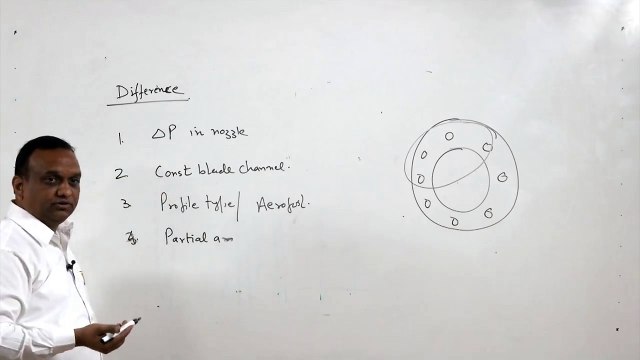 Difference
1. ΔP in nozzle
2. Const blade channel.
3 Profile type/ Aerofoil.
4. Partial